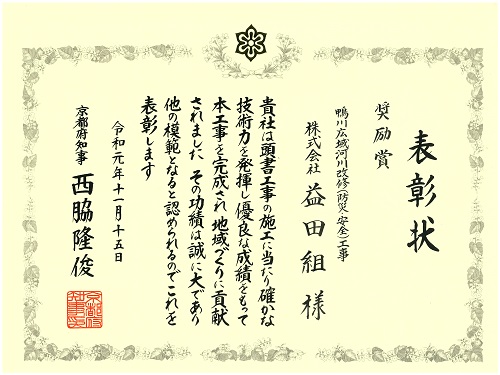 表彰状
奨励賞
鴨川広域河川改修(防災・安全)工事
株式会社 益田組 様
貴社は頭書工事の施工に当たり確かな
技術力を発揮し優良な成績をもって
本工事を完成され地域づくりに貢献
されました その功績は誠に大であり
他の模範となると認められるのでこれを
表彰します
令和元年十一月十五日
京都府知事 西脇隆俊
京都府
知事印